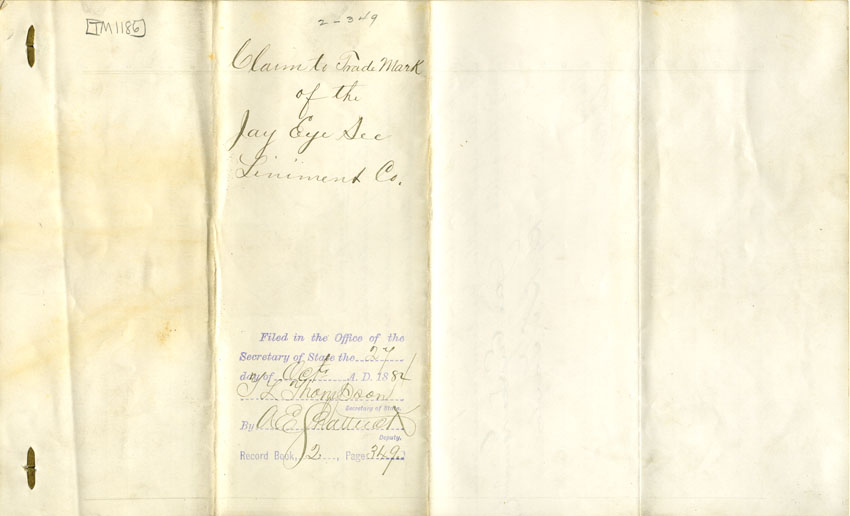 TM1186
2-349
Claim to Trade Mark
of the
Jay Eye See
Liniment Co.
Filed in the Office of the
Secretary of State the 27
day of Oct A. D. 1884
T L Thompson
Secretary of State.
By A E Shattuck
Deputy.
Record Book, 2, Page 349